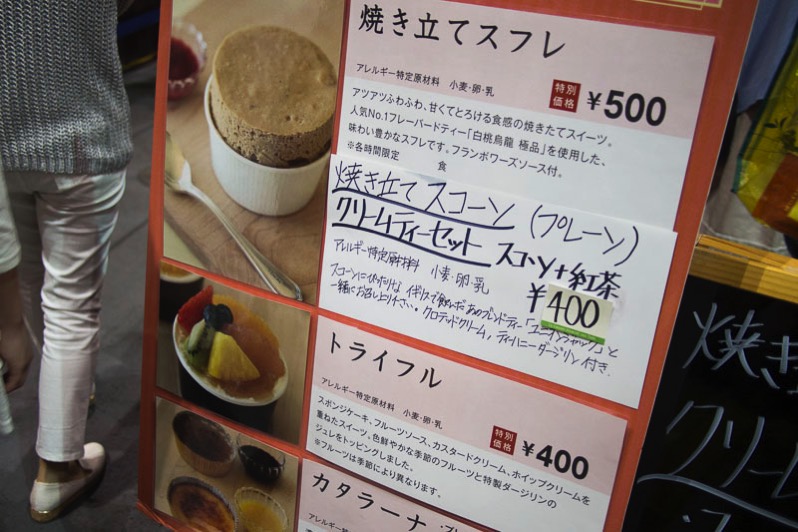 焼き立てスフレ
アレルギー特定原材料 小麦・卵・乳
特別価格 ¥500
アツアツふわふわ、甘くてとろける食感の焼きたてスイーツ。
人気No.1フレーバードティー「白桃烏龍 極品」を使用した、
味わい豊かなスフレです。フランボワーズソース付。
※各時間限定 食
焼き立てスコーン(プレーン)
クリームティーセット スコーン+紅茶
アレルギー特定原材料 小麦・卵・乳
¥400
スコーンに
イギリスで飲んだあのブレンドティー「ユニオンジャック」と
一緒にお召し上り下さい。クロテッドクリーム、ティーハニーダージリン付き.
トライフル
アレルギー特定原材料 小麦・卵・乳
特別価格 ¥400
スポンジケーキ、フルーツソース、カスタードクリーム、ホイップクリームを
重ねたスイーツ。色鮮やかな季節のフルーツと特製ダージリンの
ジュレをトッピングしました。
※フルーツは季節により異なります。
カタラーナ
アレルギー特定原材料
焼き
クリーム